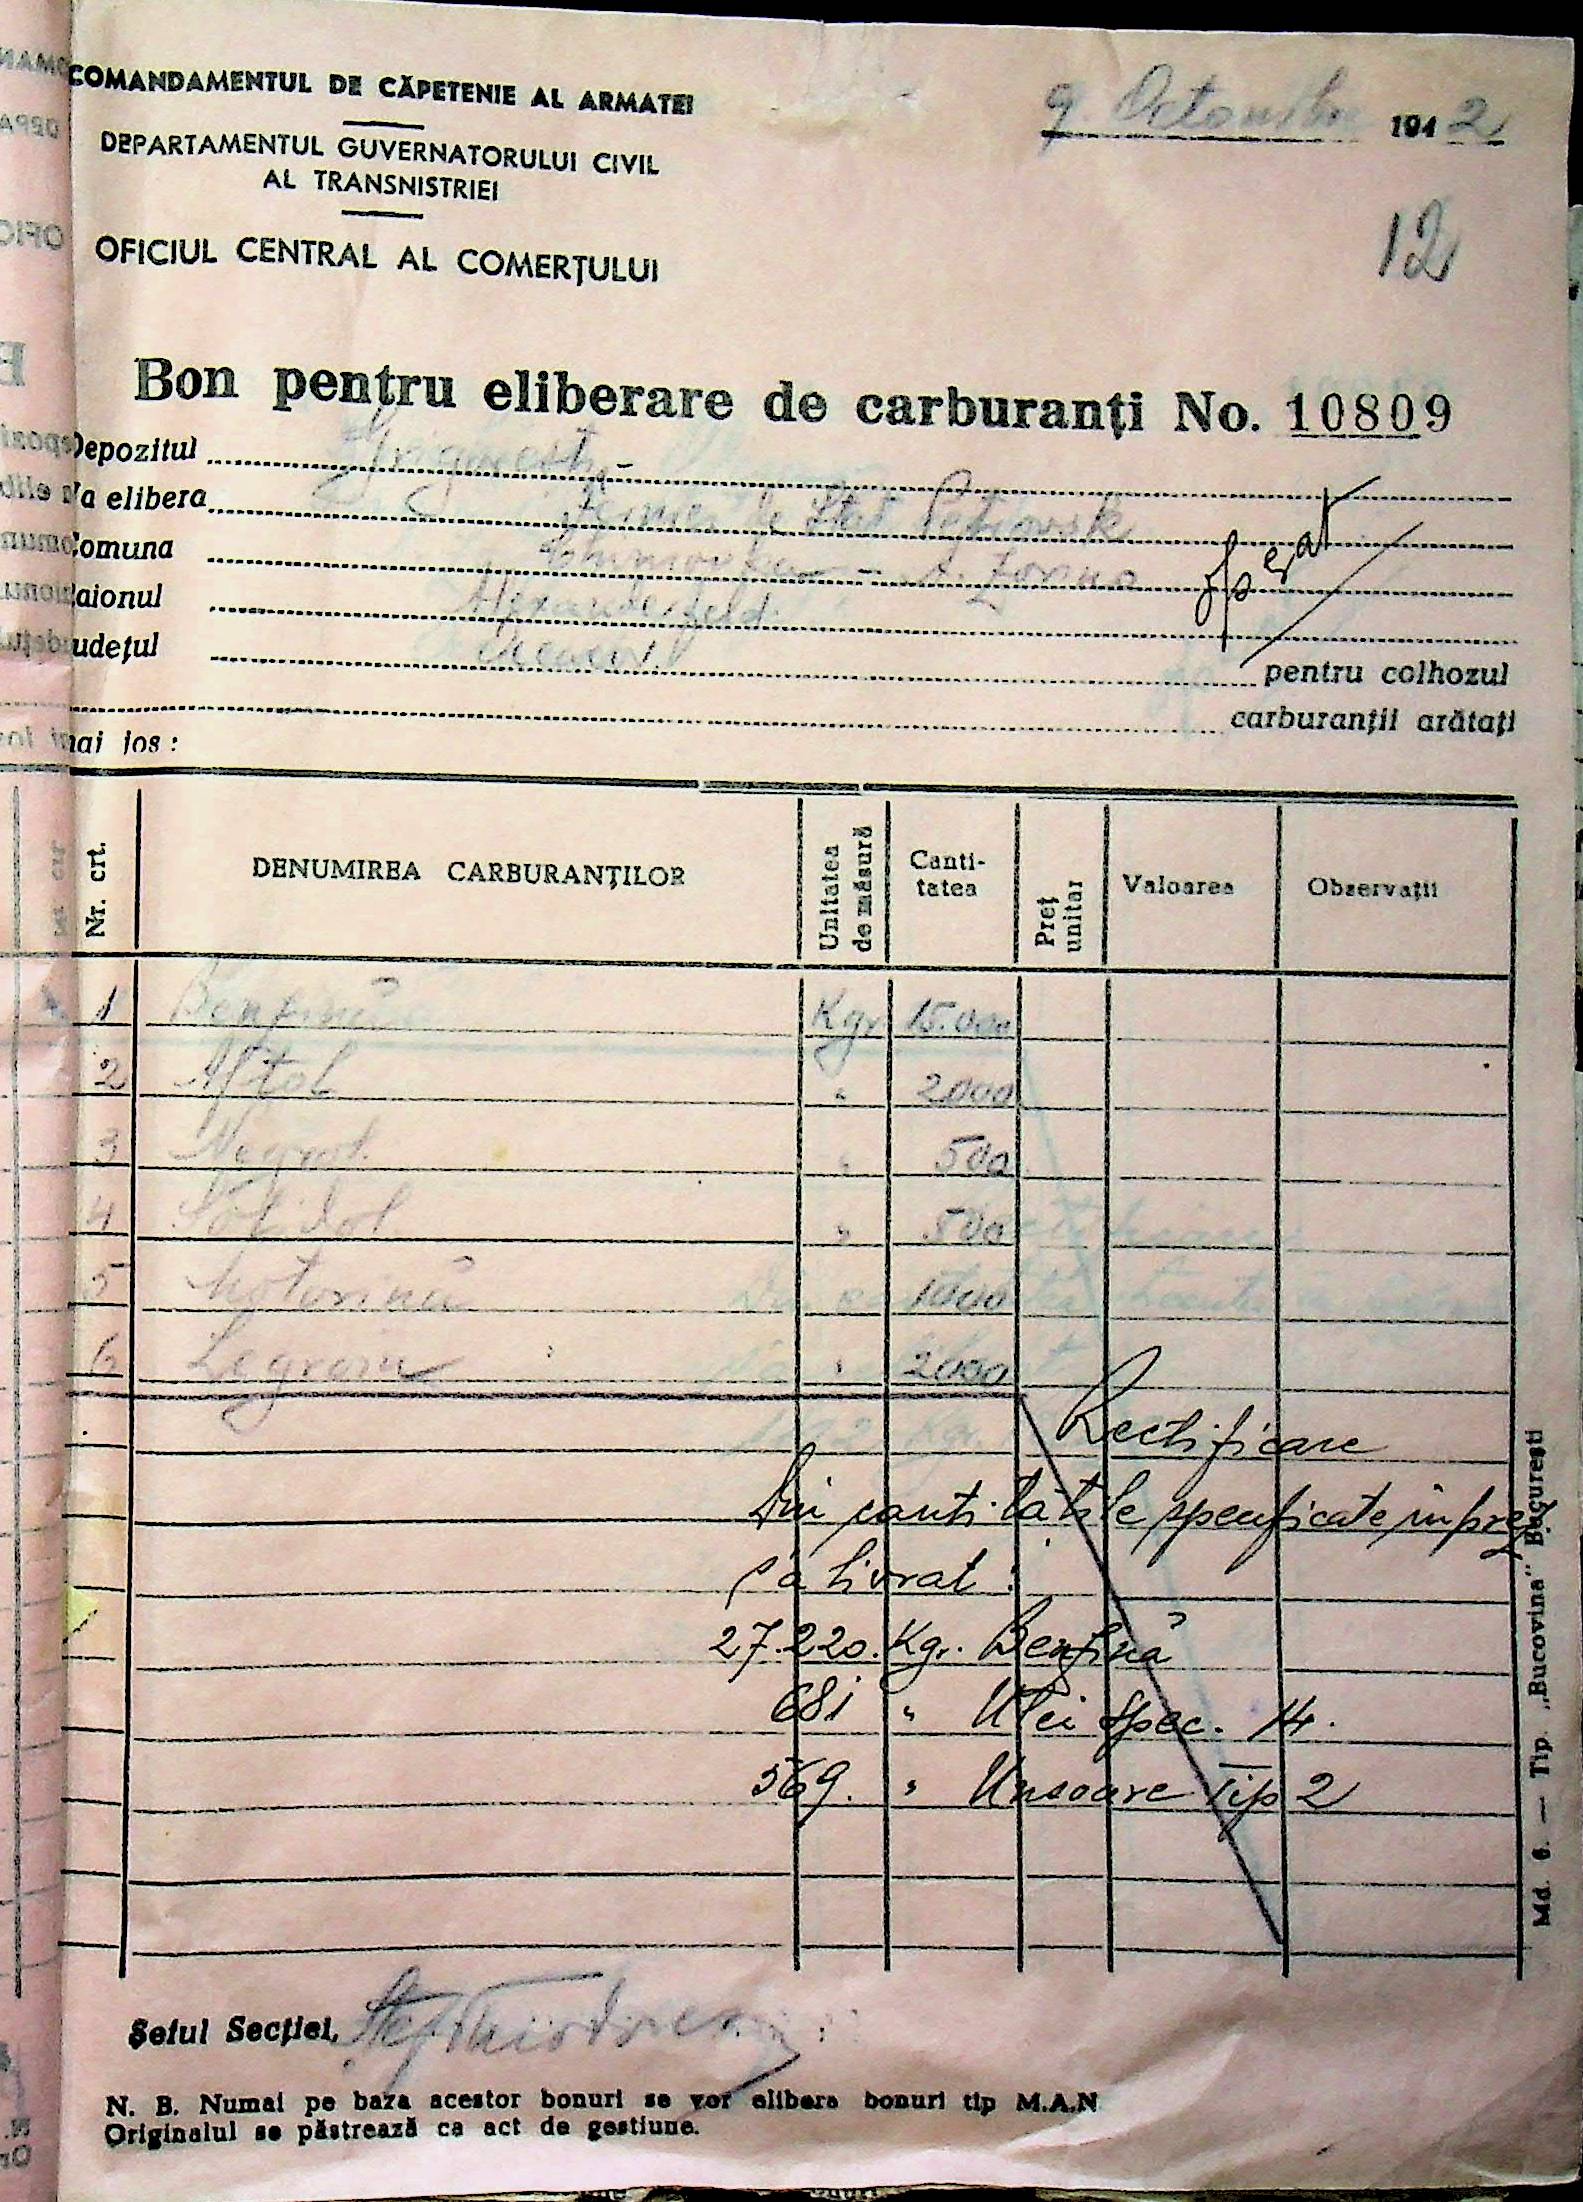 COMANDAMENTUL DE CĂPETENIE AL ARMATEI
DEPARTAMENTUL GUVERNATORULUI CIVIL
AL TRANSNISTRIEI
OFICIUL CENTRAL AL COMERȚULUI
9. Octombrie 1942
12
Bon pentru eliberare de carburanți No. 10809
Depozitul
Va elibera Fermei de Stat
Comuna
Raionul Alexanderfeld.
Județul pentru colhozul
carburanții arătați
mai jos:
operat
Nr. crt. DENUMIREA CARBURANȚILOR Unitatea de măsură Cantitatea Preț unitar Valoarea Observații
1 Benzină Kgr 15.000
2 Aftol " 2000
3 Negrol " 500
4 Solidol " 500
5 Motorină 1000
6 Legroin " 2000
Rectificare
Din cantitățile specificate
s'a livrat:
27.220. Kgr. Benzină
681 " Ulei spec. 14.
569. " Unsoare Tip 2
Șeful Secției,
N. B. Numai pe baza acestor bonuri se vor elibera bonuri tip M.A.N
Originalul se păstrează ca act de gestiune.
Md. 6. — Tip. „Bucovina" București